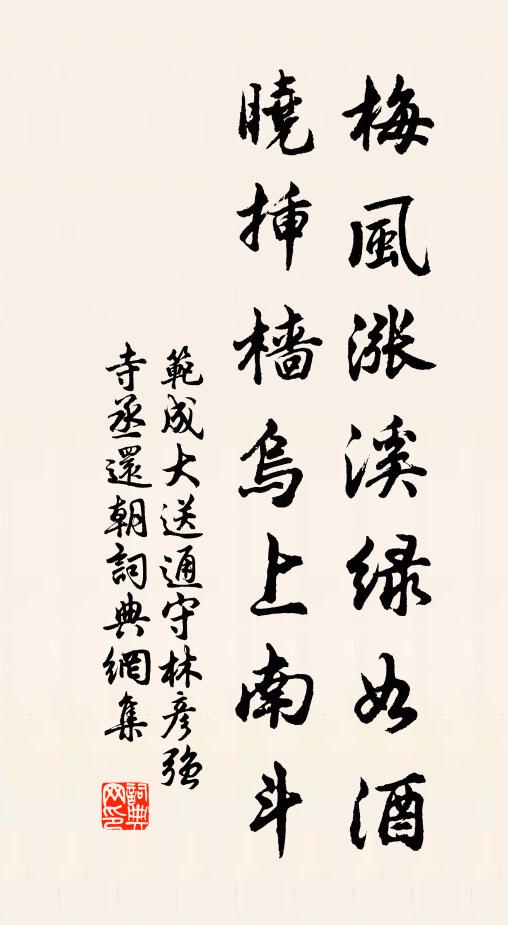 梅風漲溪綠如酒
曉挿檣烏上南斗
範成大送通守林彥強
寺丞還朝詞典網集
詞典网印